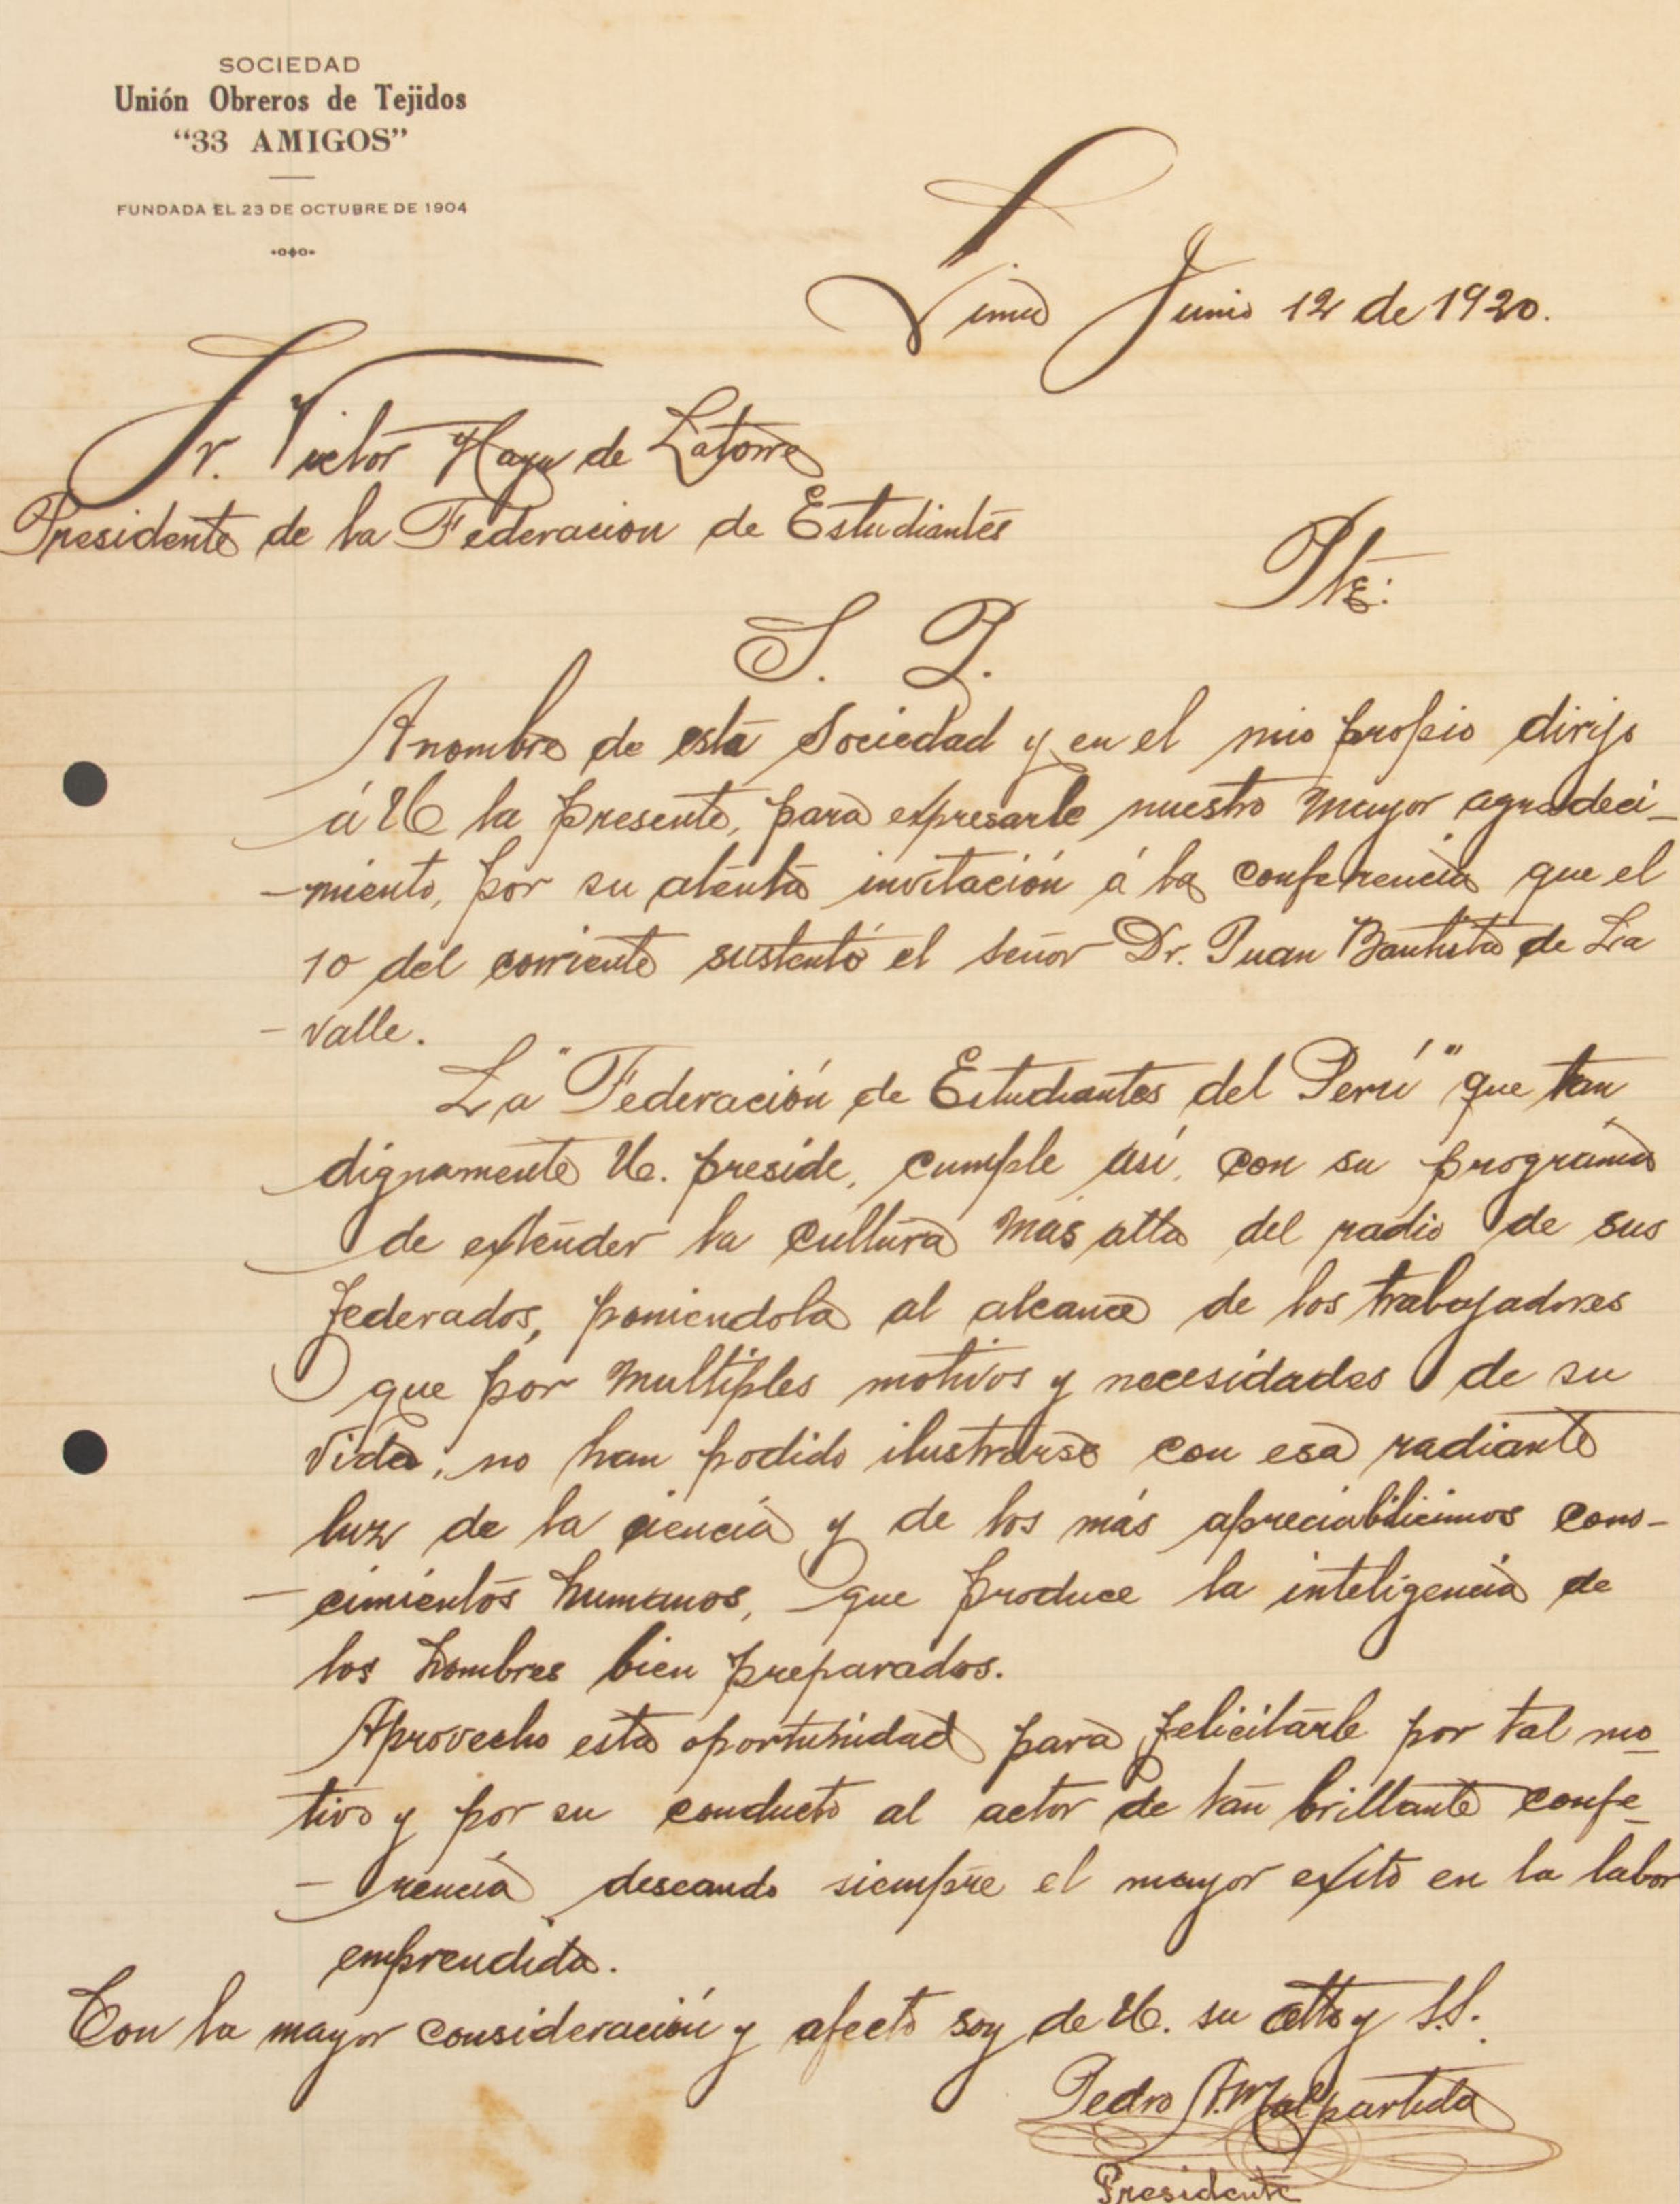 SOCIEDAD
Unión Obreros de Tejidos
"33 AMIGOS"
FUNDADA EL 23 DE OCTUBRE DE 1904
Lima Junio 12 de 1920.
Sr. Victor Haya de Latorre
Presidente de la Federacion de Estudiantes
Pte:
S. P.
A nombre de esta Sociedad y en el mio propio dirijo
á U. la presente, para expresarle nuestro mayor agradeci-
-miento, por su atenta invitación á la conferencia que el
10 del corriente sustentó el señor Dr. Juan Bautista de La
-valle.
La "Federación de Estudiantes del Perú" que tan
dignamente U. preside, cumple así, con su programa
de extender la cultura más alta del radio de sus
federados, poniendola al alcance de los trabajadores
que por multiples motivos y necesidades de su
vida, no han podido ilustrarse con esa radiante
luz de la ciencia y de los más apreciabilicimos cono-
-cimientos humanos, que produce la inteligencia de
los hombres bien preparados.
Aprovecho esta oportunidad para felicitarle por tal mo-
tivo y por su conducto al actor de tan brillante confe-
-rencia deseando siempre el mayor exito en la labor
emprendida.
Con la mayor consideración y afecto soy de U. su atto y S.S.
Pedro A. Malpartida
Presidente